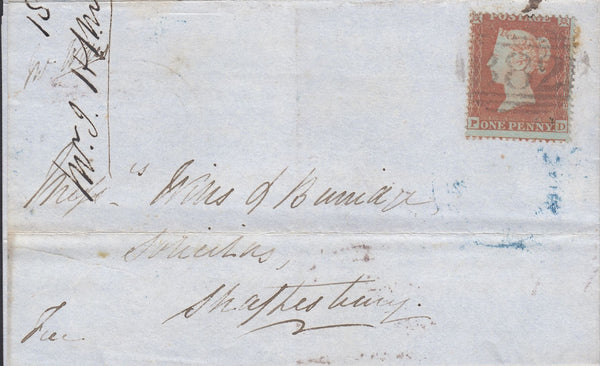 15
Mr. J.
POSTAGE
P ONE PENNY D
Messrs Wills & Burridge
Solicitors,
Shaftesbury.
Free